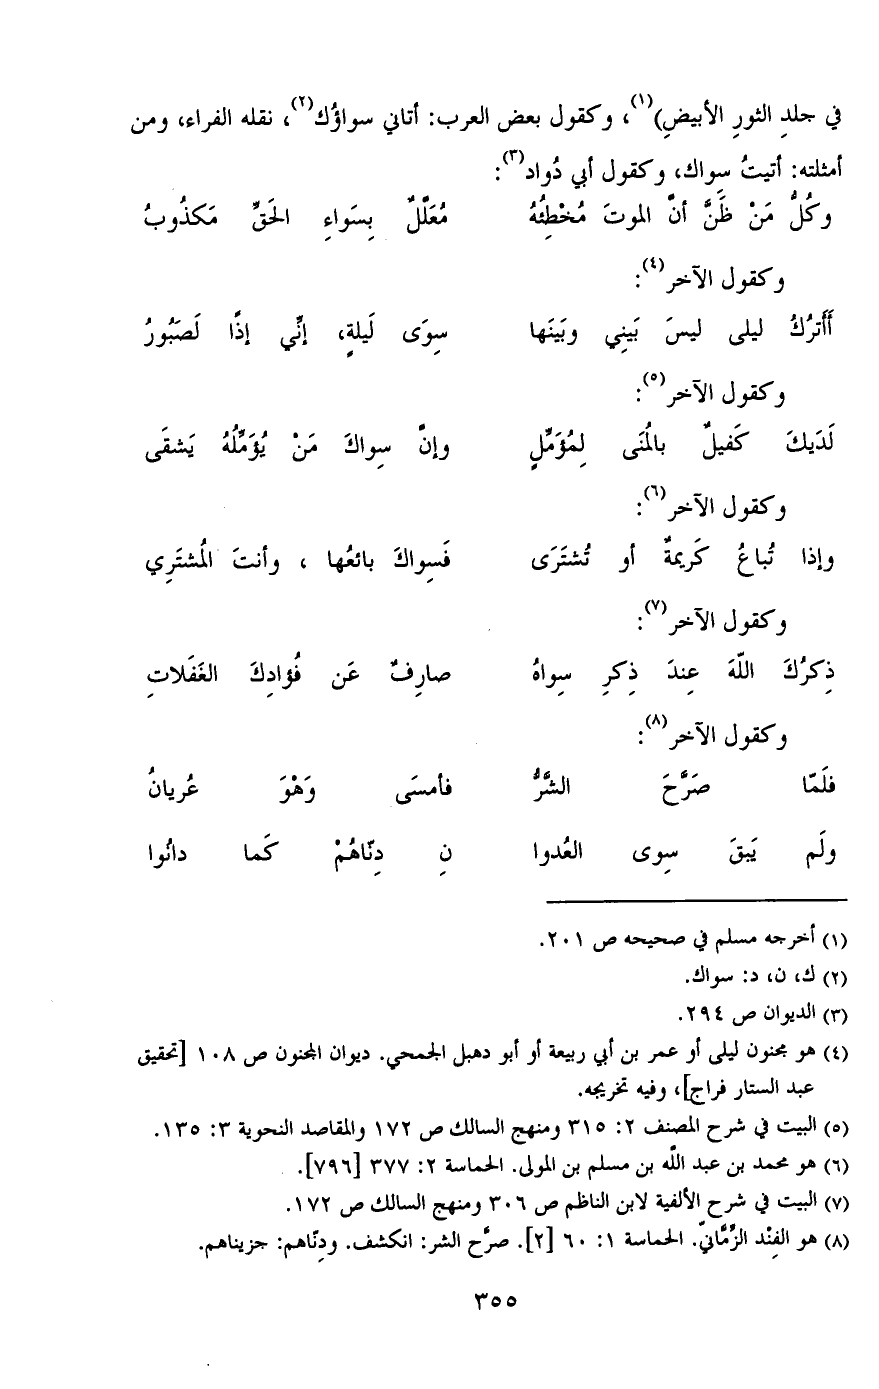 في جلدِ الثورِ الأبيضِ)(١)، وكقول بعض العرب: أتاني سواؤُك(٢)، نقله الفراء، ومن
أمثلته: أتيتُ سِواك، وكقول أبي دُواد(٣):
وكُلُّ مَنْ ظَنَّ أنَّ الموتَ مُخْطِئُهُ مُعَلَّلٌ بِسَواءِ الحَقِّ مَكذُوبُ
وكقول الآخر(٤):
أَأَترُكُ ليلى ليسَ بَينِي وبَينَها سِوَى لَيلةٍ، إنِّي إذًا لَصَبُورُ
وكقول الآخر(٥):
لَدَيكَ كَفيلٌ بالمُنَى لِمُؤَمِّلٍ وإنَّ سِواكَ مَنْ يُؤَمِّلُهُ يَشقَى
وكقول الآخر(٦):
وإذا تُباعُ كَريمةٌ أو تُشتَرَى فَسِواكَ بائعُها ، وأنتَ المُشتَرِي
وكقول الآخر(٧):
ذِكرُكَ اللّهَ عِندَ ذِكرِ سِواهُ صارِفٌ عَن فُؤادِكَ الغَفَلاتِ
وكقول الآخر(٨):
فلَمّا صَرَّحَ الشَّرُّ فأمسَى وَهْوَ عُريانُ
ولَم يَبقَ سِوى العُدوا نِ دِنّاهُمْ كَما دانُوا
(١) أخرجه مسلم في صحيحه ص ٢٠١.
(٢) ك، ن، د: سواك.
(٣) الديوان ص ٢٩٤.
(٤) هو مجنون ليلى أو عمر بن أبي ربيعة أو أبو دهبل الجمحي. ديوان المجنون ص ١٠٨ [تحقيق
عبد الستار فراج]، وفيه تخريجه.
(٥) البيت في شرح المصنف ٢: ٣١٥ ومنهج السالك ص ١٧٢ والمقاصد النحوية ٣: ١٣٥.
(٦) هو محمد بن عبد اللّه بن مسلم بن المولى. الحماسة ٢: ٣٧٧ [٧٩٦].
(٧) البيت في شرح الألفية لابن الناظم ص ٣٠٦ ومنهج السالك ص ١٧٢.
(٨) هو الفِنْد الزِّمَّانيّ. الحماسة ١: ٦٠ [٢]. صرَّح الشر: انكشف. ودِنّاهم: جزيناهم.
٣٥٥